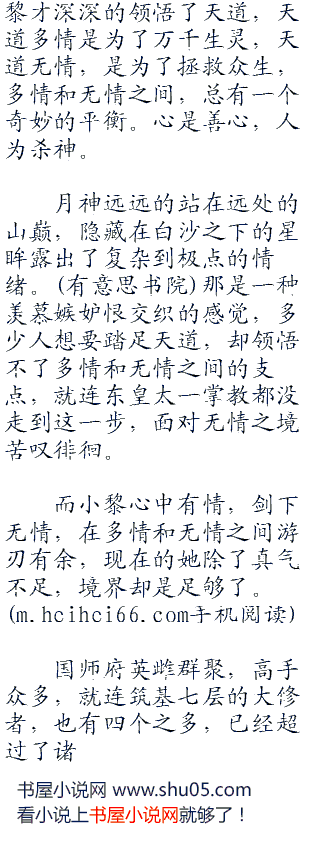 黎才深深的领悟了天道，天
道多情是为了万千生灵，天
道无情，是为了拯救众生，
多情和无情之间，总有一个
奇妙的平衡。心是善心，人
为杀神。
月神远远的站在远处的
山巅，隐藏在白沙之下的星
眸露出了复杂到极点的情
绪。(有意思书院)那是一种
羡慕嫉妒恨交织的感觉，多
少人想要踏足天道，却领悟
不了多情和无情之间的支
点，就连东皇太一掌教都没
走到这一步，面对无情之境
苦叹徘徊。
而小黎心中有情，剑下
无情，在多情和无情之间游
刃有余，现在的她除了真气
不足，境界却是足够了。
(m.hcihci66.com手机阅读)
国师府英雌群聚，高手
众多，就连筑基七层的大修
者，也有四个之多，已经超
过了诸
书屋小说网 www.shu05.com
看小说上书屋小说网就够了！